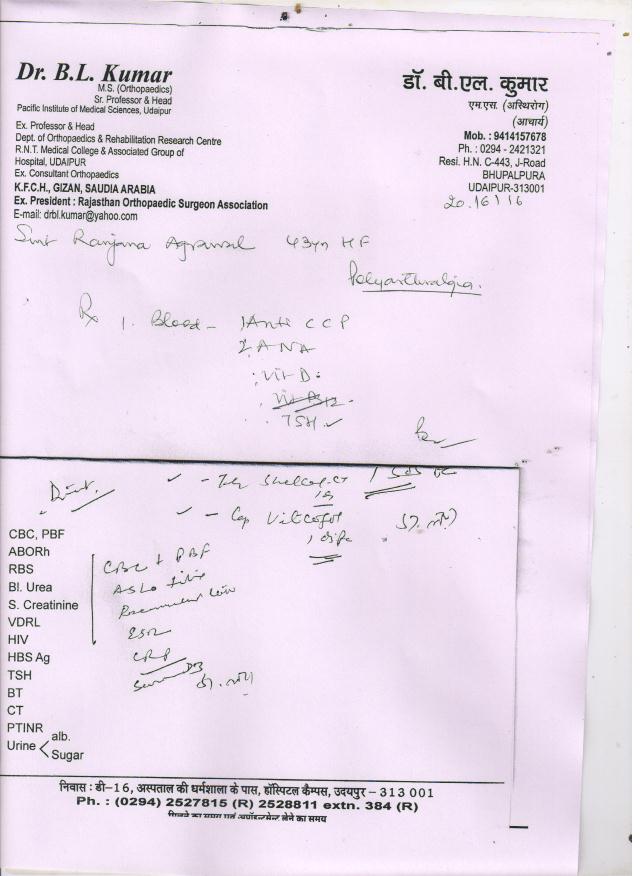 Dr. B.L. Kumar
M.S. (Orthopaedics)
Sr. Professor & Head
Pacific Institute of Medical Sciences, Udaipur
Ex. Professor & Head
Dept. of Orthopaedics & Rehabilitation Research Centre
R.N.T. Medical College & Associated Group of
Hospital, UDAIPUR
Ex. Consultant Orthopaedics
K.F.C.H., GIZAN, SAUDIA ARABIA
Ex. President : Rajasthan Orthopaedic Surgeon Association
E-mail: drbl.kumar@yahoo.com
डॉ. बी.एल. कुमार
एम.एस. (अस्थिरोग)
(आचार्य)
Mob. : 9414157678
Ph. : 0294 - 2421321
Resi. H.N. C-443, J-Road
BHUPALPURA
UDAIPUR-313001
20.16/16
Smt Ranjana Agrawal 43yr HF
Polyarthralgia.
Rx 1. Blood - 1) Anti CCP
2. ANA
Vit D
Vit B12
TSH
- Tab Shelcal-CT
- Cap
CBC, PBF
ABORh
RBS
Bl. Urea
S. Creatinine
VDRL
HIV
HBS Ag
TSH
BT
CT
PTINR
Urine < alb.
Sugar
CBC + PBF
ASLO titre
ESR
CRP
निवास : डी-16, अस्पताल की धर्मशाला के पास, हॉस्पिटल कैम्पस, उदयपुर - 313 001
Ph. : (0294) 2527815 (R) 2528811 extn. 384 (R)
मिलने का समय एवं अपॉइन्टमेन्ट लेने का समय